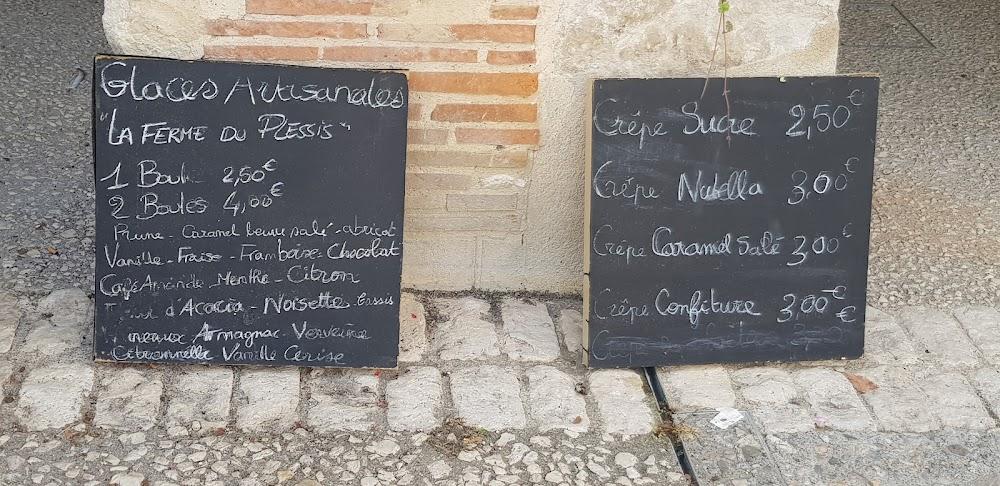 Glaces Artisanales
"LA FERME DU PLESSIS"
1 Boule 2,50€
2 Boules 4,00€
Prune - Caramel Beurre salé - abricot
Vanille - Fraise - Framboise - Chocolat
Café Amande - Menthe - Citron
d'Acacia - Noisette Cassis
Pruneaux Armagnac Verveine
Citronnelle Vanille Cerise
Crêpe Sucre 2,50€
Crêpe Nutella 3,00€
Crêpe Caramel Salé 3,00€
Crêpe Confiture 3,00€